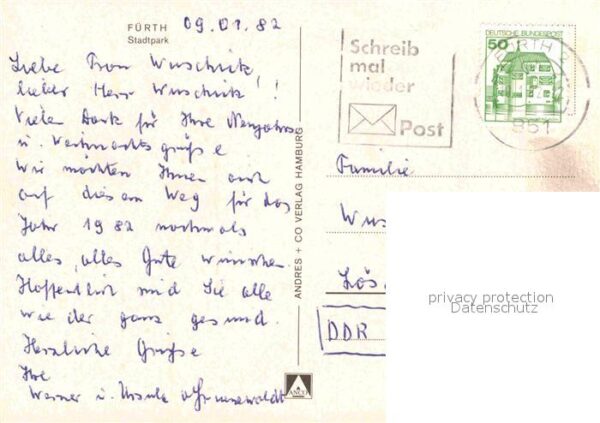 FÜRTH
Stadtpark
09.01.82
Liebe Frau Wuschick,
lieber Herr Wuschick,!
Vielen Dank für Ihre Neujahrs
u. Weihnachtsgrüße
Wir möchten Ihnen auch
auf diesem Weg für das
Jahr 1982 nochmals
alles, alles Gute wünschen.
Hoffentlich sind Sie alle
wieder ganz gesund.
Herzliche Grüße
Ihre
Werner u. Ursula
ANDRES + CO VERLAG HAMBURG
ANCO
Schreib
mal
wieder
Post
DEUTSCHE BUNDESPOST
50
FÜRTH
851
Familie
Wus
Lös
DDR
privacy protection
Datenschutz